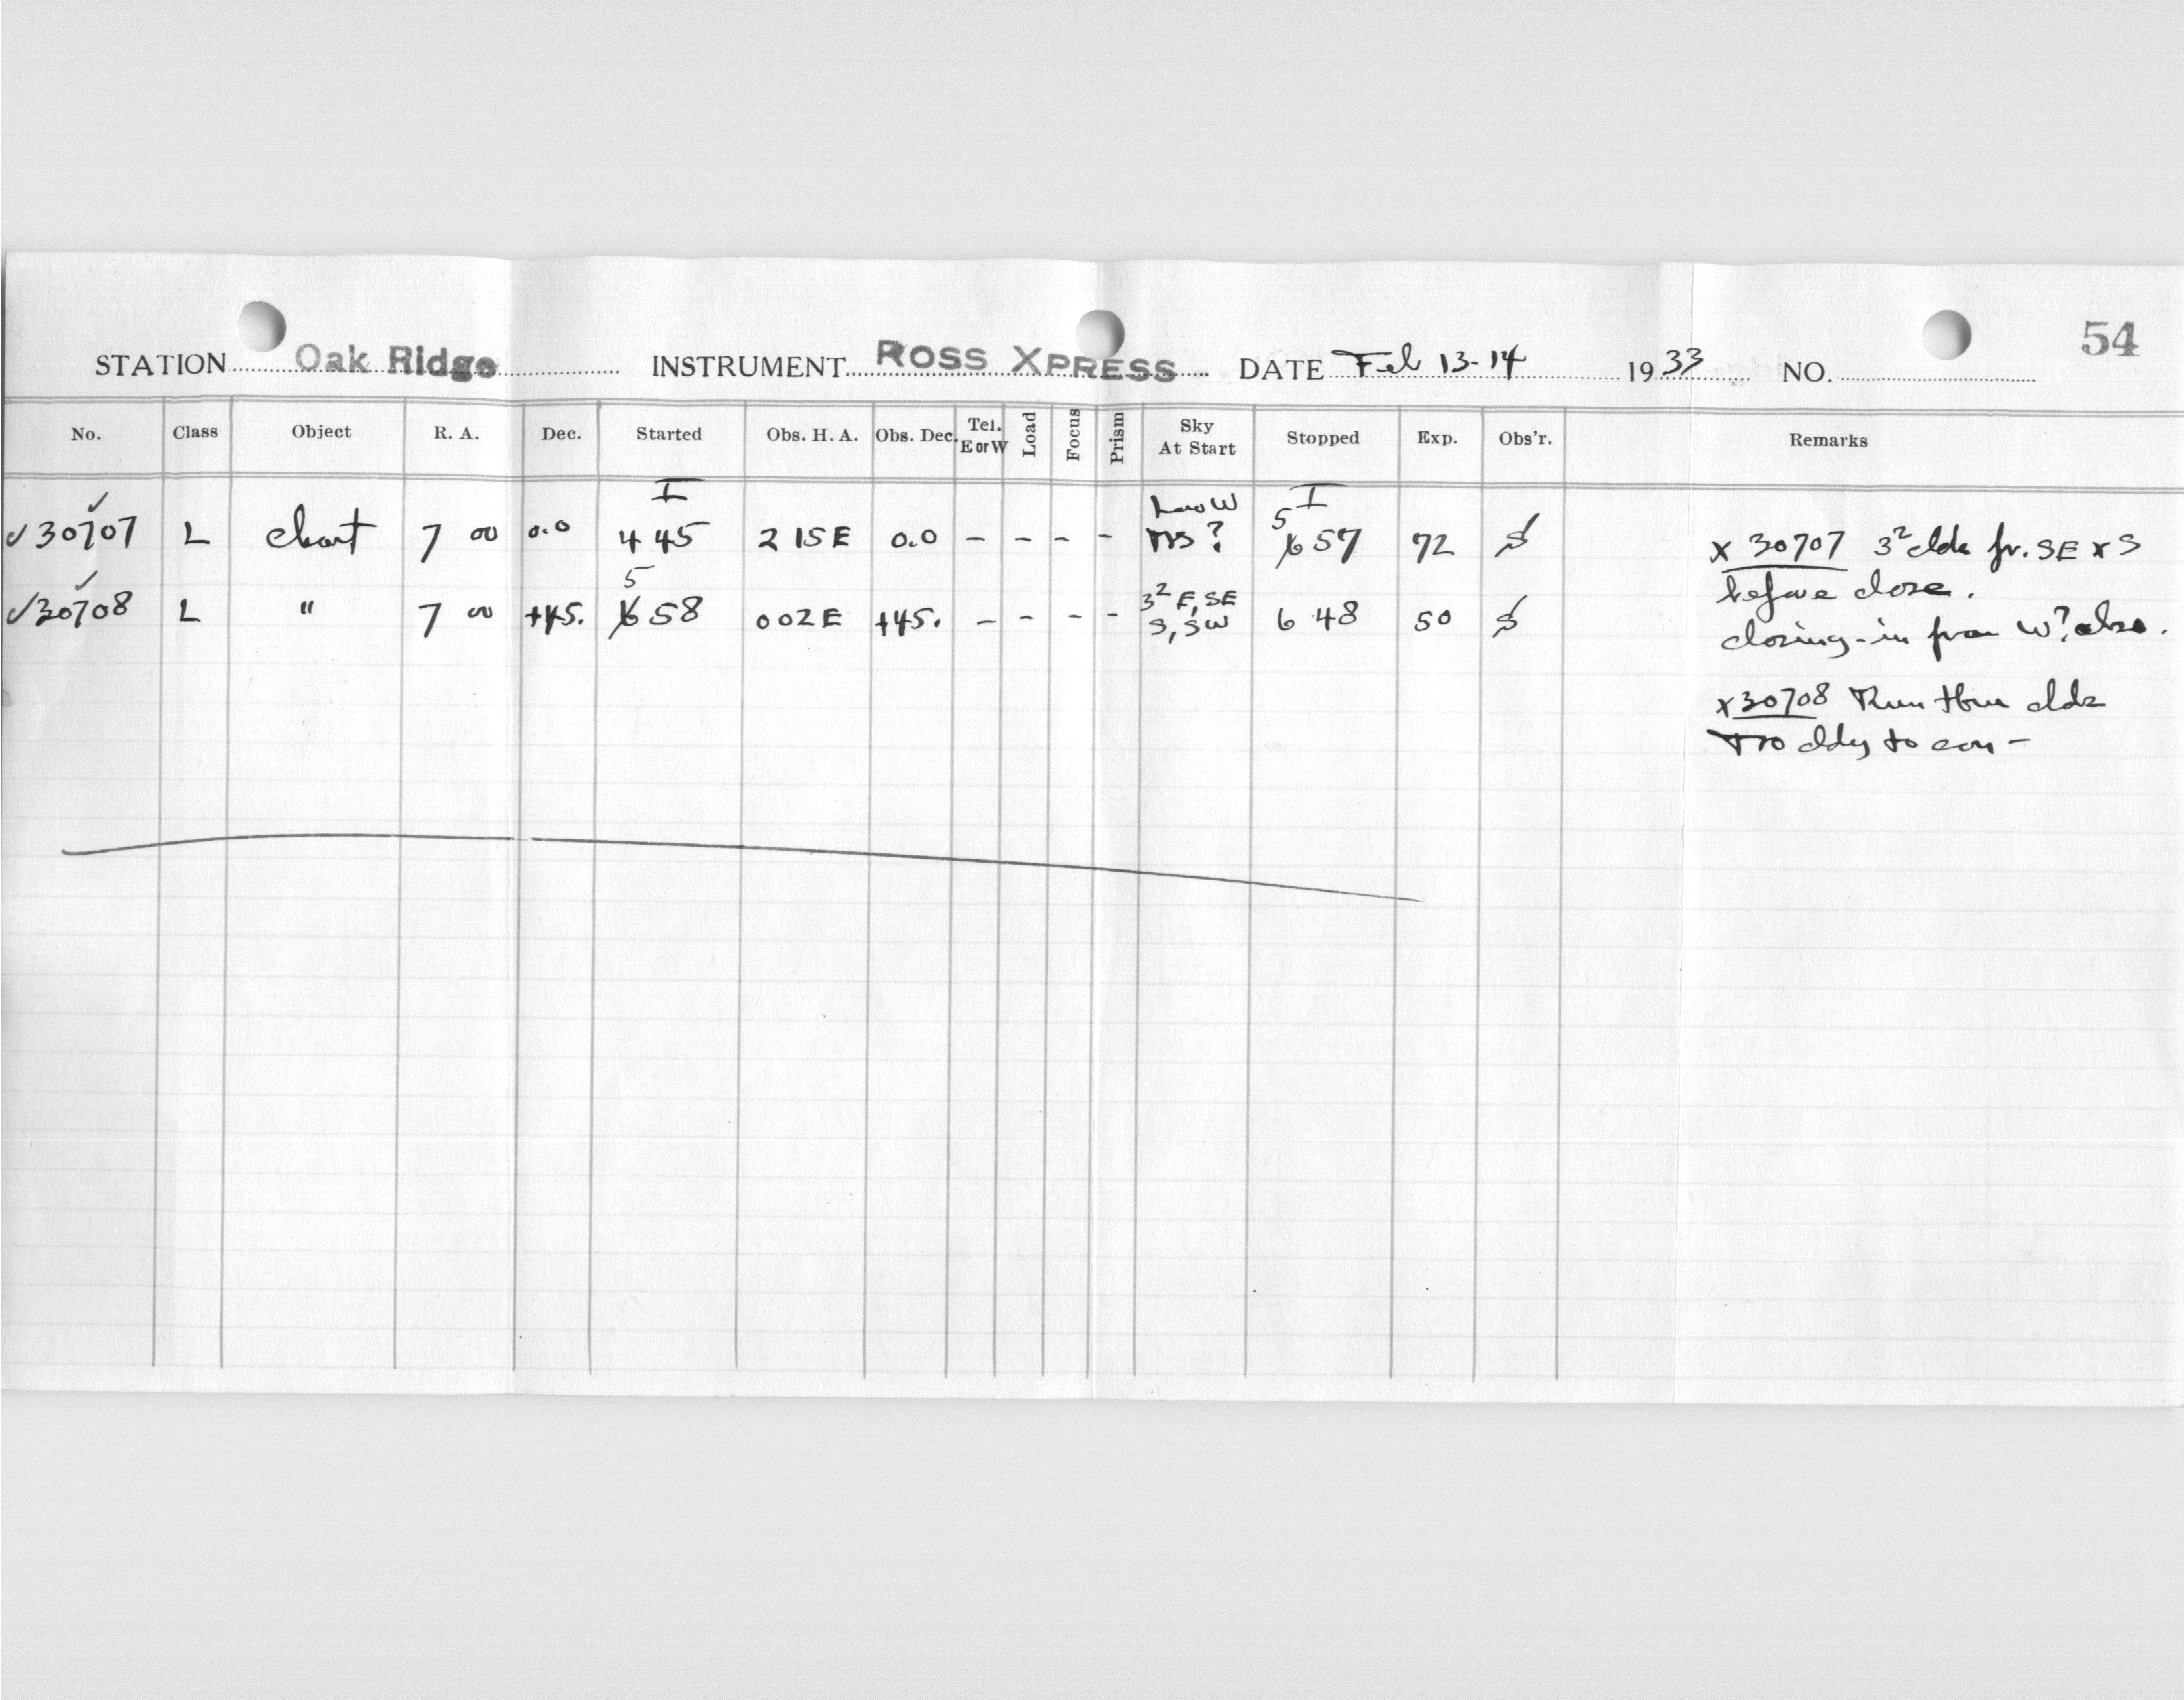 54
STATION Oak Ridge INSTRUMENT ROSS XPRESS DATE Feb 13-14 1933 NO.
No. Class Object R. A. Dec. Started Obs. H. A. Obs. Dec. Tel. E or W Load Focus Prism Sky At Start Stopped Exp. Obs'r. Remarks
I I
✓30707 ✓ L chart 7 00 0.0 4 45 2 15 E 0.0 - - - - Low W ? 5 57 72 S
✓30708 ✓ L " 7 00 +45. 5 58 0 02 E +45. - - - - 3² E, SE S, SW 6 48 50 S
x 30707 3² clds fr. SE x S
before close.
closing-in from W? also.
x 30708 Run thru clds
cldy to con -